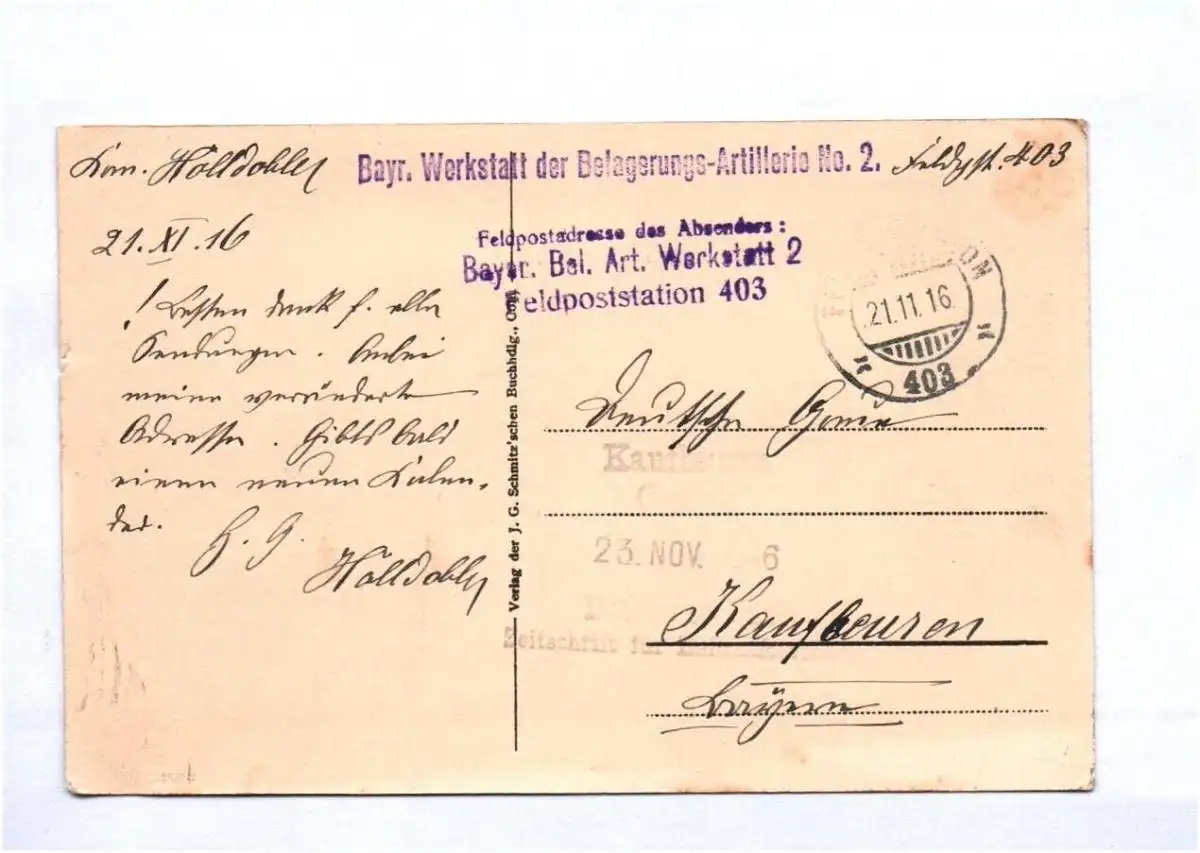 Kan. Hölldobler Bayr. Werkstatt der Belagerungs-Artillerie No. 2. Feldpst. 403
21. XI. 16
Feldpostadresse des Absenders:
Bayer. Bel. Art. Werkstatt 2
Feldpoststation 403
21.11.16.
403
! Besten Dank f. alle
Sendungen. Anbei
meine veränderte
Adresse. Gibts bald
einen neuen Kalen-
der.
H. G.
Hölldobler
Verlag der J. G. Schmitz'schen Buchhdlg., Cöln
Deutsche Gaue
Kaufbeuren
23. NOV. 6
Zeitschrift für
Kaufbeuren
Bayern